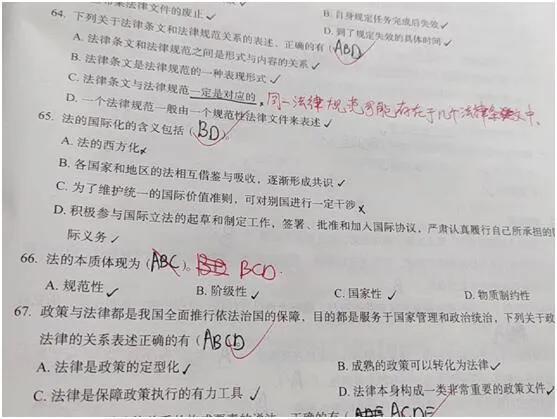 法律文件的废止✓
B. 自身规定任务完成后失效✓
64. 下列关于法律条文和法律规范关系的表述，正确的有（ABD）
D. 到了规定失效的具体时间✓
A. 法律条文和法律规范之间是形式与内容的关系✓
B. 法律条文是法律规范的一种表现形式✓
C. 法律条文与法律规范一定是对应的 × 同一法律规范可能存在于几个法律条文中.
D. 一个法律规范一般由一个规范性法律文件来表述✓
65. 法的国际化的含义包括（BD）。
A. 法的西方化×
B. 各国家和地区的法相互借鉴与吸收，逐渐形成共识✓
C. 为了维护统一的国际价值准则，可对别国进行一定干涉×
D. 积极参与国际立法的起草和制定工作，签署、批准和加入国际协议，严肃认真履行自己所承担的
际义务✓
66. 法的本质体现为（ABC）。 BCD.
A. 规范性✓
B. 阶级性✓
C. 国家性✓
D. 物质制约性
67. 政策与法律都是我国全面推行依法治国的保障，目的都是服务于国家管理和政治统治，下列关于政
法律的关系表述正确的有（ABCD）
A. 法律是政策的定型化✓
B. 成熟的政策可以转化为法律✓
C. 法律是保障政策执行的有力工具✓
D. 法律本身构成一类非常重要的政策文件✓